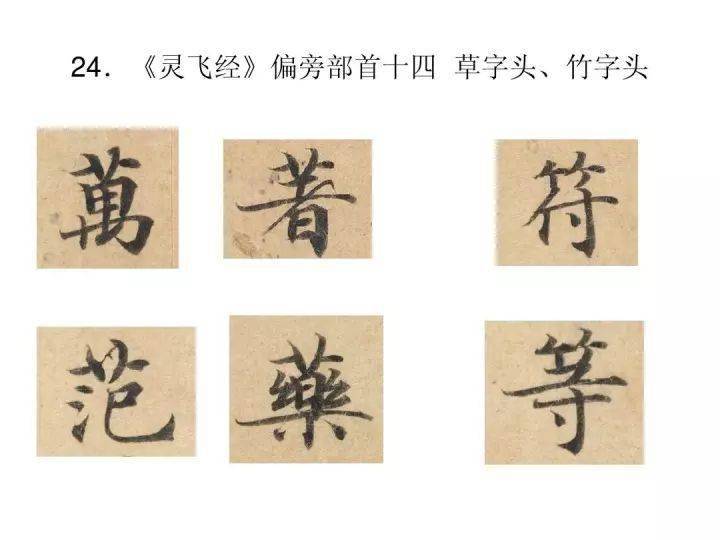 24．《灵飞经》偏旁部首十四 草字头、竹字头
萬 著 符
范 藥 等